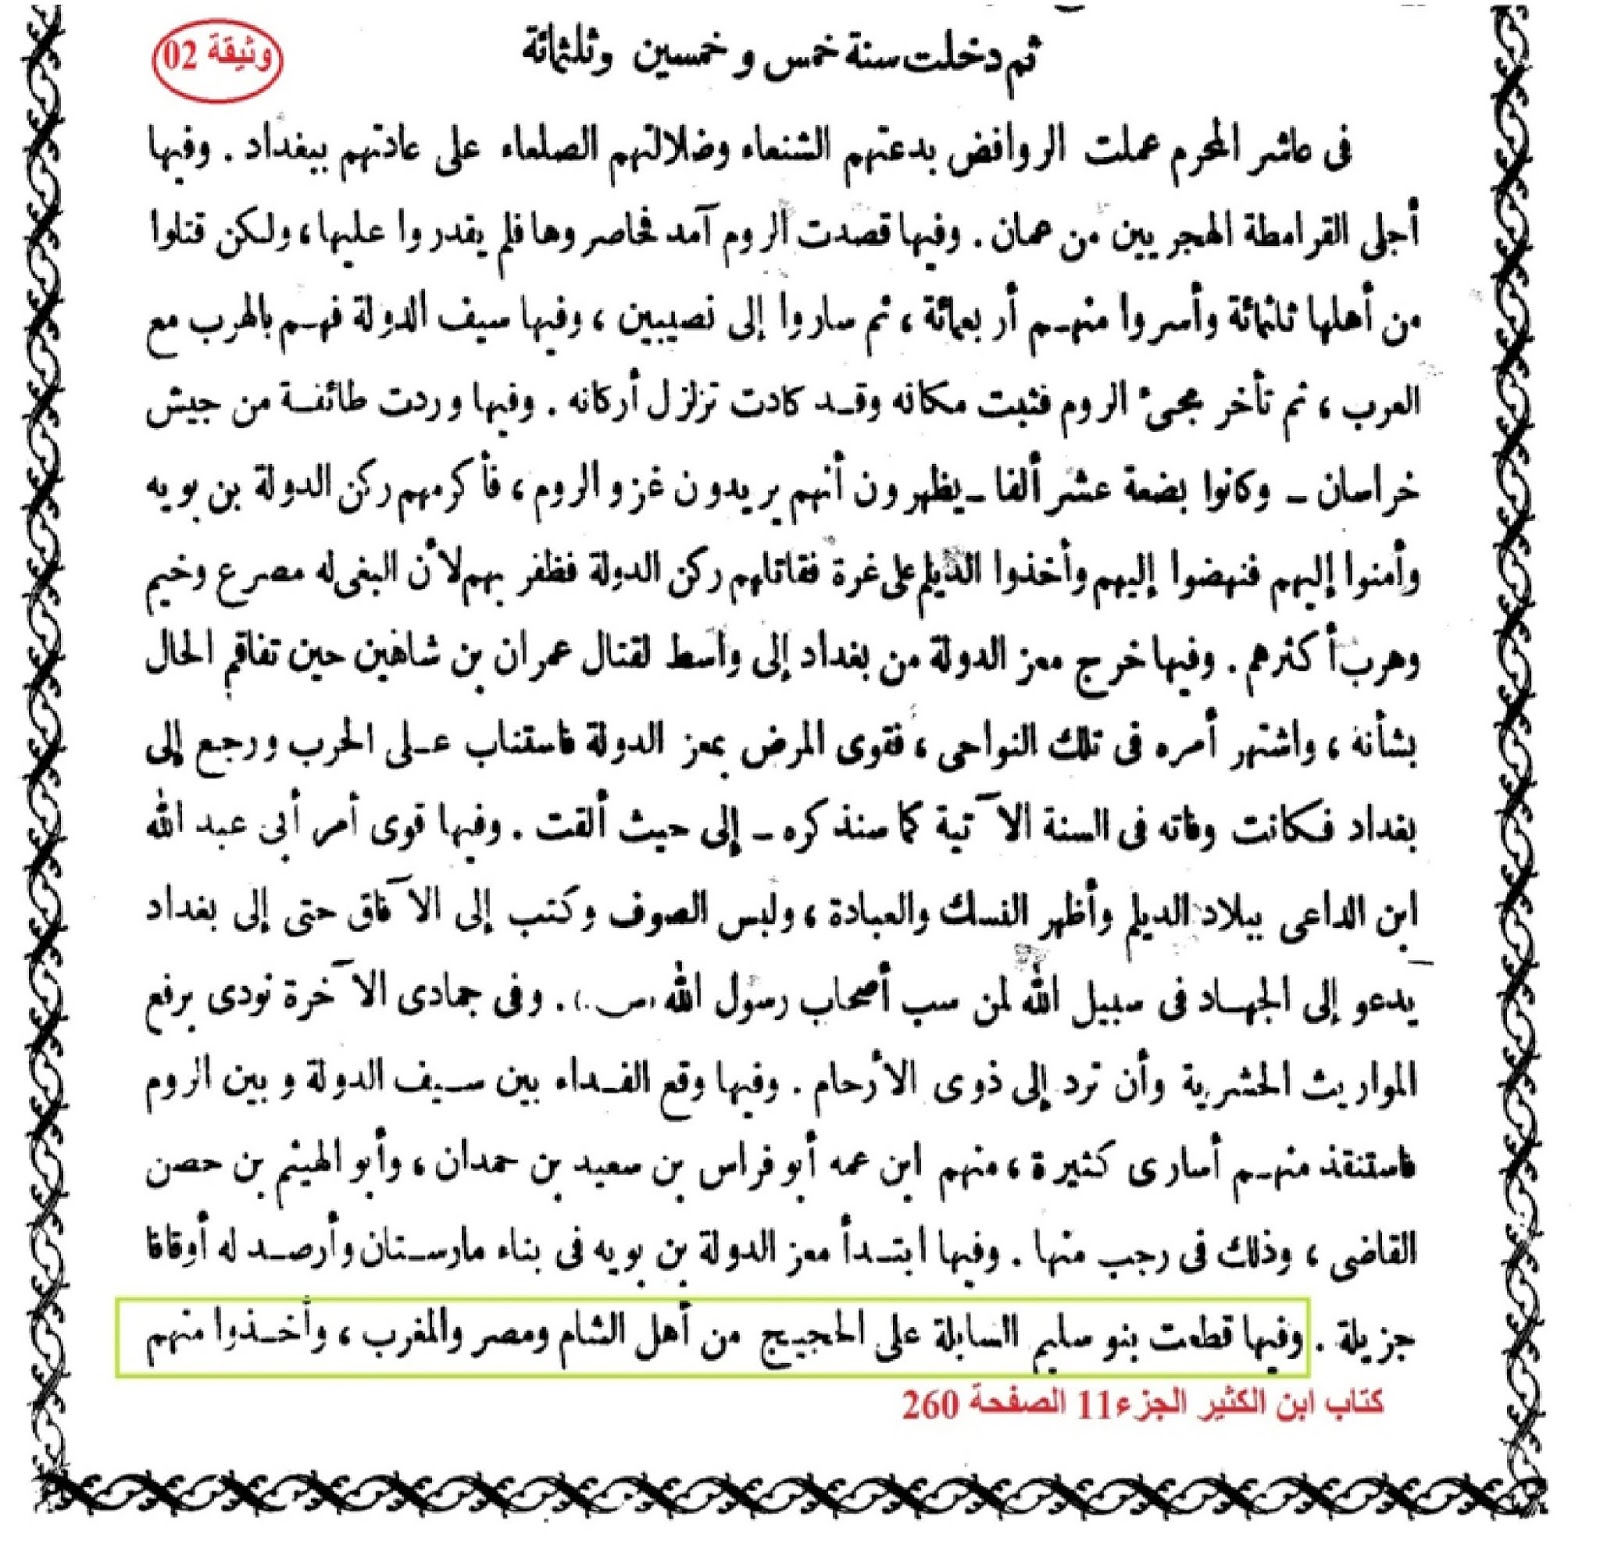 وثيقة 02
ثم دخلت سنة خمس و خمسين وثلثمائة
فى عاشر المحرم عملت الروافض بدعتهم الشنعاء وضلالتهم الصلعاء على عادتهم ببغداد . وفيها
أجلى القرامطة الهجريين من عمان . وفيها قصدت الروم آمد فحاصروها فلم يقدروا عليها ، ولكن قتلوا
من أهلها ثلثمائة وأسروا منهم أربعمائة ، ثم ساروا إلى نصيبين ، وفيها سيف الدولة فهم بالهرب مع
العرب ، ثم تأخر مجىء الروم فثبت مكانه وقد كادت تزلزل أركانه . وفيها وردت طائفة من جيش
خراسان ـ وكانوا بضعة عشر ألفا ـ يظهرون أنهم يريدون غزو الروم ، فأكرمهم ركن الدولة بن بويه
وأمنوا إليهم فنهضوا إليهم وأخذوا الديلم على غرة فقاتلهم ركن الدولة فظفر بهم لأن البغى له مصرع وخيم
وهرب أكثرهم . وفيها خرج معز الدولة من بغداد إلى واسط لقتال عمران بن شاهين حين تفاقم الحال
بشأنه ، واشتهر أمره فى تلك النواحى ، فقوى المرض بمعز الدولة فاستناب على الحرب ورجع إلى
بغداد فكانت وفاته فى السنة الآتية كما سنذكره ـ إلى حيث ألقت . وفيها قوى أمر أبى عبد الله
ابن الداعى ببلاد الديلم وأظهر النسك والعبادة ، ولبس الصوف وكتب إلى الآفاق حتى إلى بغداد
يدعو إلى الجهاد فى سبيل الله لمن سب أصحاب رسول الله (ص) . وفى جمادى الآخرة نودى برفع
المواريث الحشرية وأن ترد إلى ذوى الأرحام . وفيها وقع الفداء بين سيف الدولة وبين الروم
فاستنقذ منهم أسارى كثيرة ، منهم ابن عمه أبو فراس بن سعيد بن حمدان ، وأبو الهيثم بن حصن
القاضى ، وذلك فى رجب منها . وفيها ابتدأ معز الدولة بن بويه فى بناء مارستان وأرصد له أوقافا
جزيلة . وفيها قطعت بنو سليم السابلة على الحجيج من أهل الشام ومصر والمغرب ، وأخذوا منهم
كتاب ابن الكثير الجزء11 الصفحة 260